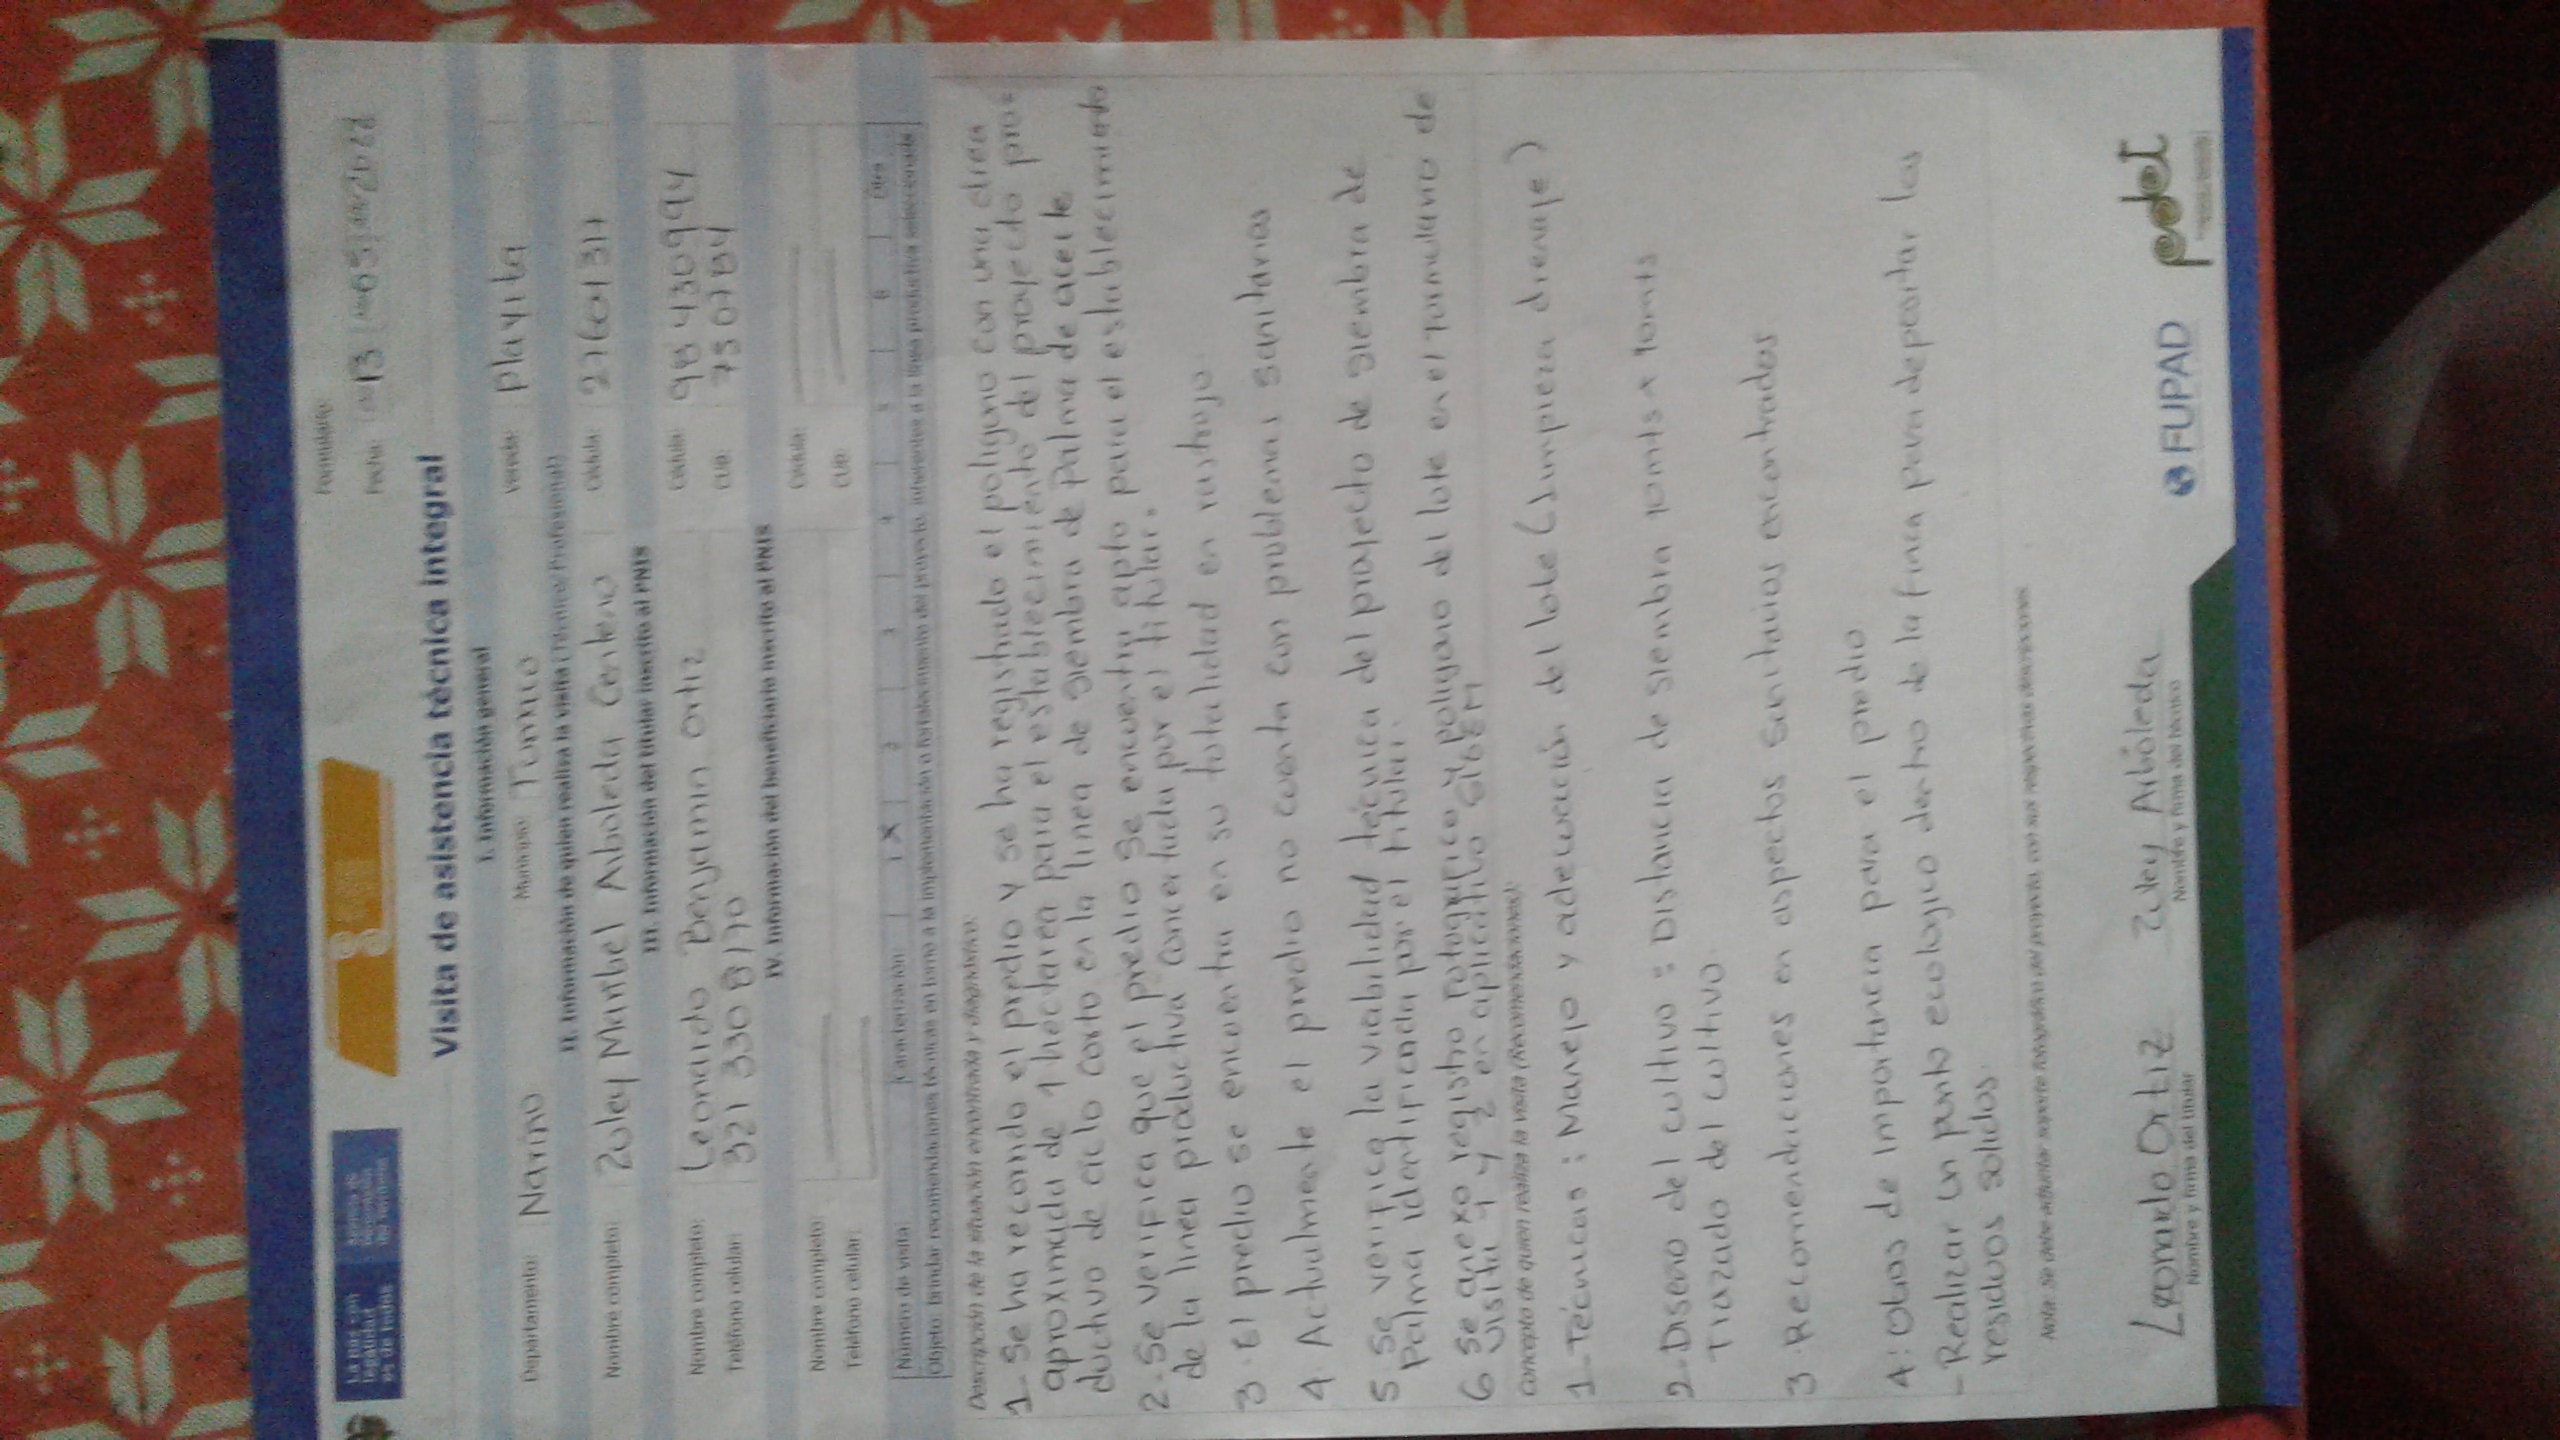 La paz con
legalidad
es de todos
Agencia de
Renovación
del Territorio
Formulario:
Fecha: 13 05 2021
Visita de asistencia técnica integral
I. Información general
Departamento: Nariño Municipio: Tumaco Vereda: playita
II. Información de quien realiza la visita (Técnico/Profesional)
Nombre completo: Zuley Maribel Arboleda Centeno Cédula:
III. Información del titular inscrito al PNIS
Nombre completo: Leonardo Benjamin Ortiz Cédula: 98430994
Teléfono celular: 321 330 8170 CUB:
IV. Información del beneficiario inscrito al PNIS
Nombre completo: Cédula:
Teléfono celular: CUB:
Número de visita: Caracterización: 1 X 2 3 4 5 6 Otra
Objeto: Brindar recomendaciones técnicas en torno a la implementación o fortalecimiento del proyecto, inherentes a la línea productiva seleccionada
Descripción de la situación encontrada y diagnóstico:
1- Se ha recorrido el predio y se ha registrado el poligono con una area
aproximada de 1 hectarea para el establecimiento del proyecto pro=
ductivo de ciclo corto en la linea de siembra de palma de aceite
2- Se verifica que el predio se encuentra apto para el establecimiento
de la linea productiva concertada por el titular.
3. El predio se encuentra en su totalidad en rastrojo.
4 Actualmente el predio no cuenta con problemas sanitarios
5. Se verifica la viabilidad técnica del proyecto de siembra de
palma identificada por el titular.
6 Se anexo registro fotografico y poligono del lote en el formulario de
visita 1 y 2 en aplicativo
Concepto de quien realiza la visita (Recomendaciones):
1- Técnicas : Manejo y adecuación del lote (Limpieza drenaje)
2- Diseño del cultivo : Distancia de siembra 10mts x 10mts
Trazado del cultivo.
3. Recomendaciones en aspectos sanitarios encontrados
4: Obras de importancia para el predio
- Realizar un punto ecologico dentro de la finca para depositar los
residuos solidos.
Nota: Se debe adjuntar soporte fotográfico del proyecto, con sus respectivas observaciones
Leonardo Ortiz
Nombre y firma del titular
Zuley Arboleda
Nombre y firma del técnico
FUPAD
pdet